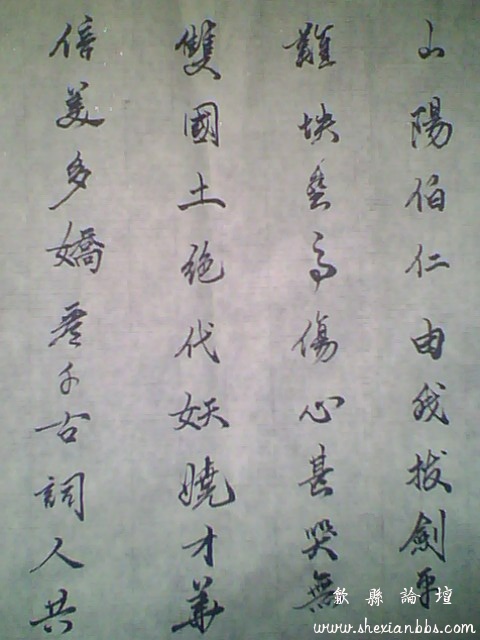 山陽伯仁由我拔劍平
難块垒高傷心甚哭無
雙國土绝代妖嬈才華
倍美多嬌看千古詞人共
歙縣論壇
www.shexianbbs.com